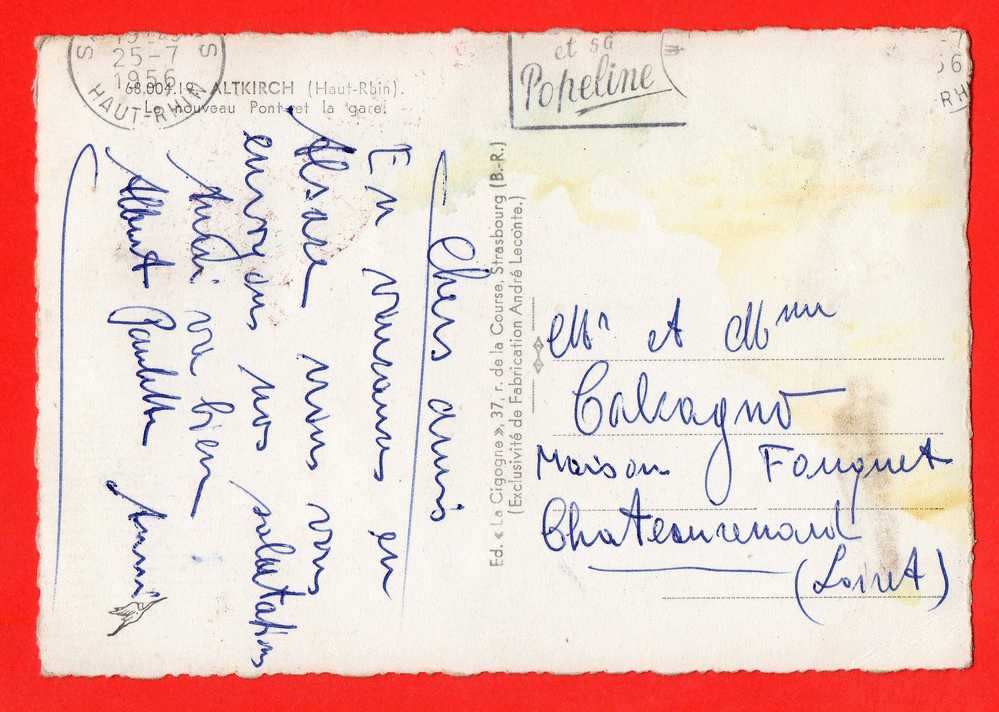 25-7
1956
HAUT-RHIN
et sa
Popeline
68.004.19 ALTKIRCH (Haut-Rhin).
Le nouveau Pont et la gare.
Chers amis
En vacances en
Alsace nous vous
envoyons nos salutations
va bien.
Albert Paulette Anni
Ed. « La Cigogne », 37, r. de la Course, Strasbourg (B.-R.)
(Exclusivité de Fabrication André Leconte.)
Mr et Mme
Calcagno
Maison Fouquet
Chateaurenard
(Loiret)